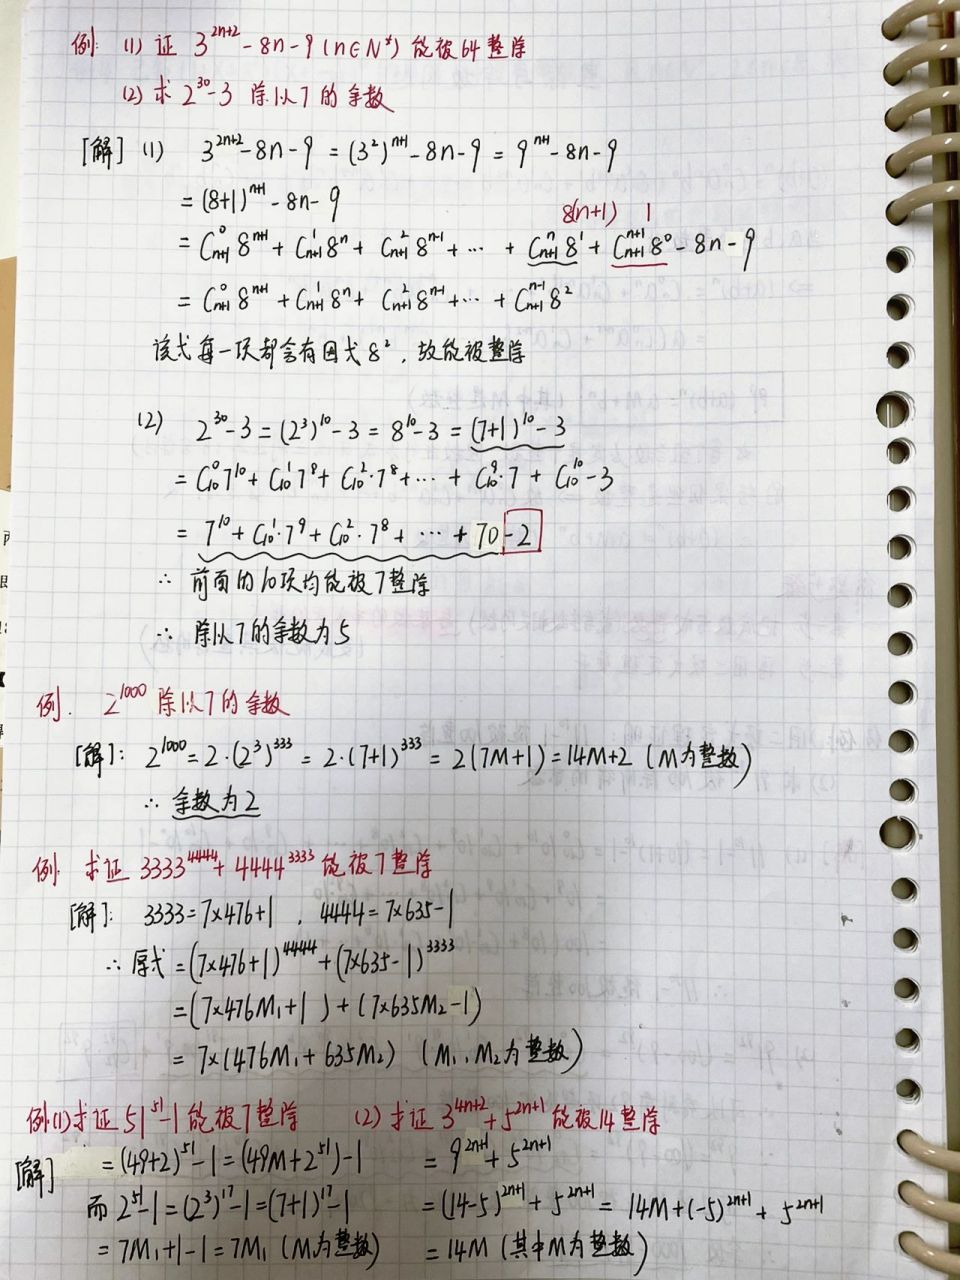 例: (1) 证 3^{2n+2}-8n-9 (n∈N*) 能被64整除
(2) 求 2^{30}-3 除以7的余数
[解] (1) 3^{2n+2}-8n-9 = (3^2)^{n+1}-8n-9 = 9^{n+1}-8n-9
= (8+1)^{n+1}-8n-9
8(n+1) 1
= C_{n+1}^0 8^{n+1} + C_{n+1}^1 8^n + C_{n+1}^2 8^{n-1} + ⋯ + C_{n+1}^n 8^1 + C_{n+1}^{n+1} 8^0 - 8n - 9
= C_{n+1}^0 8^{n+1} + C_{n+1}^1 8^n + C_{n+1}^2 8^{n-1} + ⋯ + C_{n+1}^{n-1} 8^2
该式每一项都含有因式 8^2, 故能被整除
(2) 2^{30}-3 = (2^3)^{10}-3 = 8^{10}-3 = (7+1)^{10}-3
= C_{10}^0 7^{10} + C_{10}^1 7^8 + C_{10}^2·7^8 + ⋯ + C_{10}^9·7 + C_{10}^{10}-3
= 7^{10} + C_{10}^1·7^9 + C_{10}^2·7^8 + ⋯ + 70 -2
∴ 前面的10项均能被7整除
∴ 除以7的余数为5
例. 2^{1000} 除以7的余数
[解]: 2^{1000} = 2·(2^3)^{333} = 2·(7+1)^{333} = 2(7M+1) = 14M+2 (M为整数)
∴ 余数为2
例. 求证 3333^{4444}+4444^{3333} 能被7整除
[解]: 3333=7×476+1, 4444=7×635-1
∴ 原式 = (7×476+1)^{4444}+(7×635-1)^{3333}
= (7×476M₁+1) + (7×635M₂-1)
= 7×(476M₁+635M₂) (M₁,M₂为整数)
例(1)求证 51^{51}-1 能被7整除 (2) 求证 3^{4n+2}+5^{2n+1} 能被14整除
[解] = (49+2)^{51}-1 = (49M+2^{51})-1 = 9^{2n+1}+5^{2n+1}
而 2^{51}-1 = (2^3)^{17}-1 = (7+1)^{17}-1 = (14-5)^{2n+1}+5^{2n+1} = 14M+(-5)^{2n+1}+5^{2n+1}
= 7M₁+1-1 = 7M₁ (M₁为整数) = 14M (其中M为整数)